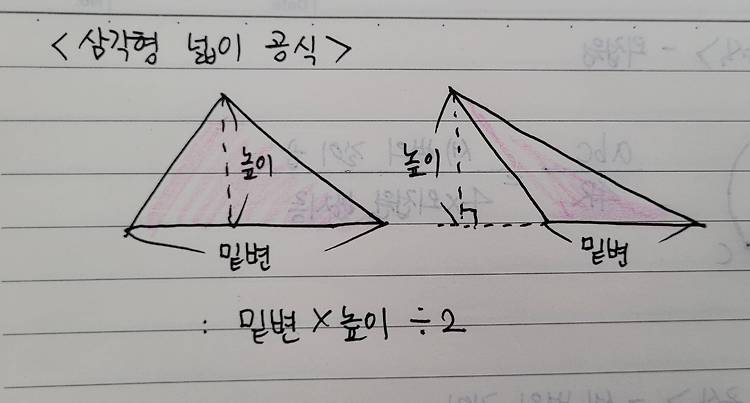 <삼각형 넓이 공식>
높이
밑변
높이
밑변
: 밑변 × 높이 ÷ 2